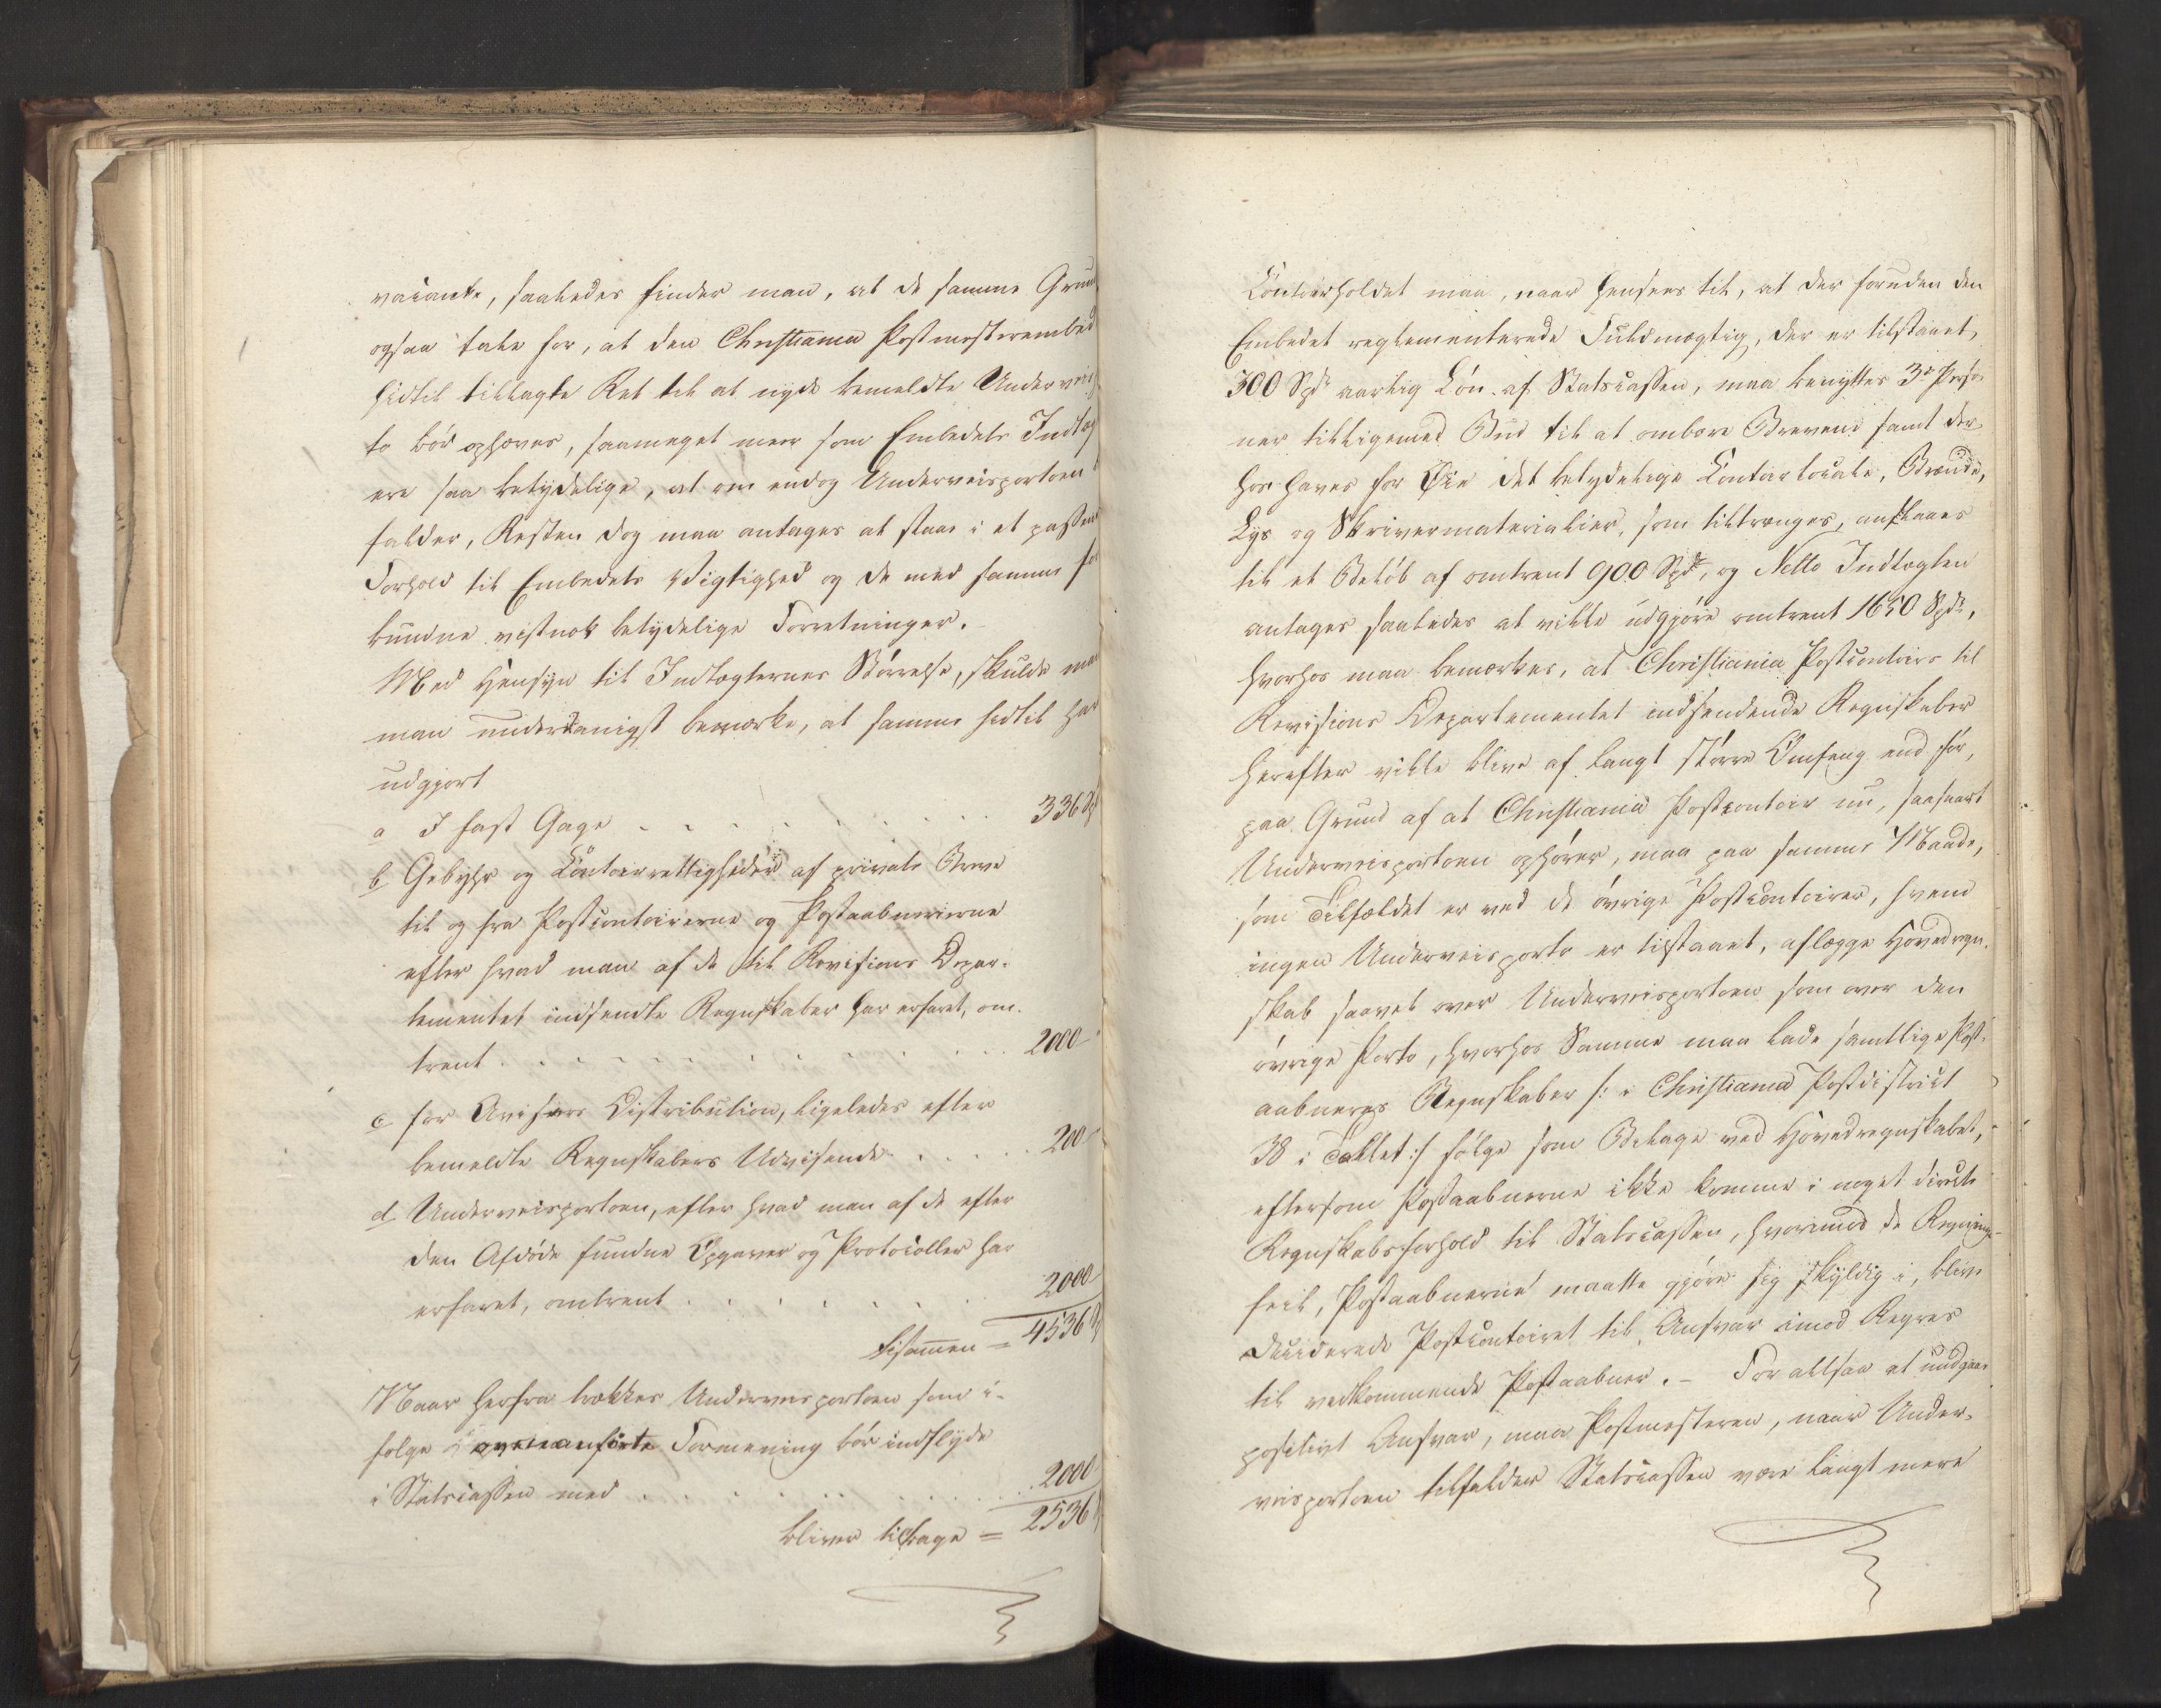 vacante, saaledes finder man, at de samme Grun
ogsaa tale for, at den Christiania Postmesterembed
hidtil tillagte Ret til at nyde bemeldte Underveis
to bör ophæves, saameget meer som Embedets Indtæg
ere saa betydelige, at om endog Underveisportoen
falder, Resten dog maa antages at staae i et passen
Forhold til Embedets Vigtighed og de med samme for
bundne vistnok betydelige Forretninger. -
Med Hensyn til Indtægternes Störrelse, skulde man
man underdanigst bemærke, at samme hidtil har
udgjort
a I fast Gage . . . . . . . . . 336 Spd
b Gebyhr og Contoirrettigheder af private Breve
til og fra Postcontoirerne og Postaabnerierne
efter hvad man af de til Revisions Depar-
tementet indsendte Regnskaber har erfaret, om-
trent . . . . . . . . . . . . 2000 -
c for Avisers Distribution, ligeledes efter
bemeldte Regnskabers Udvisende . . . . . 200 -
d Underveisportoen, efter hvad man af de efter
den Afdöde fundne Opgaver og Protocoller har
erfaret, omtrent . . . . . . . 2000 -
tilsammen = 4536 Spd
Naar herfra trækkes Underveisportoen som i-
følge ovenanförte Formening bör indflyde
i Statscassen med . . . . . . . . 2000
bliver tilbage = 2536
Contoirholdet maa, naar hensees til, at der foruden den
Embedet reglementerede Fuldmægtig, der er tilstaaet,
300 Spd aarlig Lön af Statscassen, maa benyttes 3de Perso-
ner tilligemed Bud til at ombære Brevene samt der-
hos haves for Øie det betydelige Contoirlocale, Brænde,
Lys og Skrivermaterialier, som tiltrænges, anslaaes
til et Belöb af omtrent 900 Spd, og Netto Indtægten
antages saaledes at ville udgjöre omtrent 1650 Spd,
hvorhos maa bemærkes, at Christiania Postcontoirs til
Revisions Departementet indsendende Regnskaber
herefter ville blive af langt större Omfang end för,
paa Grund af at Christiania Postcontoir nu, saasnart
Underveisportoen ophörer, maa paa samme Maade,
som Tilfældet er ved de övrige Postcontoirer, hvem
ingen Underveisporto er tilstaaet, aflægge Hovedregn-
skab saavel over Underveisportoen som over den
övrige Porto, hvorhos Samme maa lade samtlige Post-
aabneres Regnskaber /: i Christiania Postdistrict
38 i Tallet :/ fölge som Bilage ved Hovedregnskabet,
eftersom Postaabnerne ikke komme i noget directe
Regnskabsforhold til Statscassen, hvorimod de Regnings-
feil, Postaabnerne maatte gjöre sig skyldig i, blive
deciderede Postcontoiret til Ansvar imod Regres
til vedkommende Postaabner. - For altsaa at undgaae
positivt Ansvar, maa Postmesteren, naar Under-
veisportoen tilfalder Statscassen være langt mere